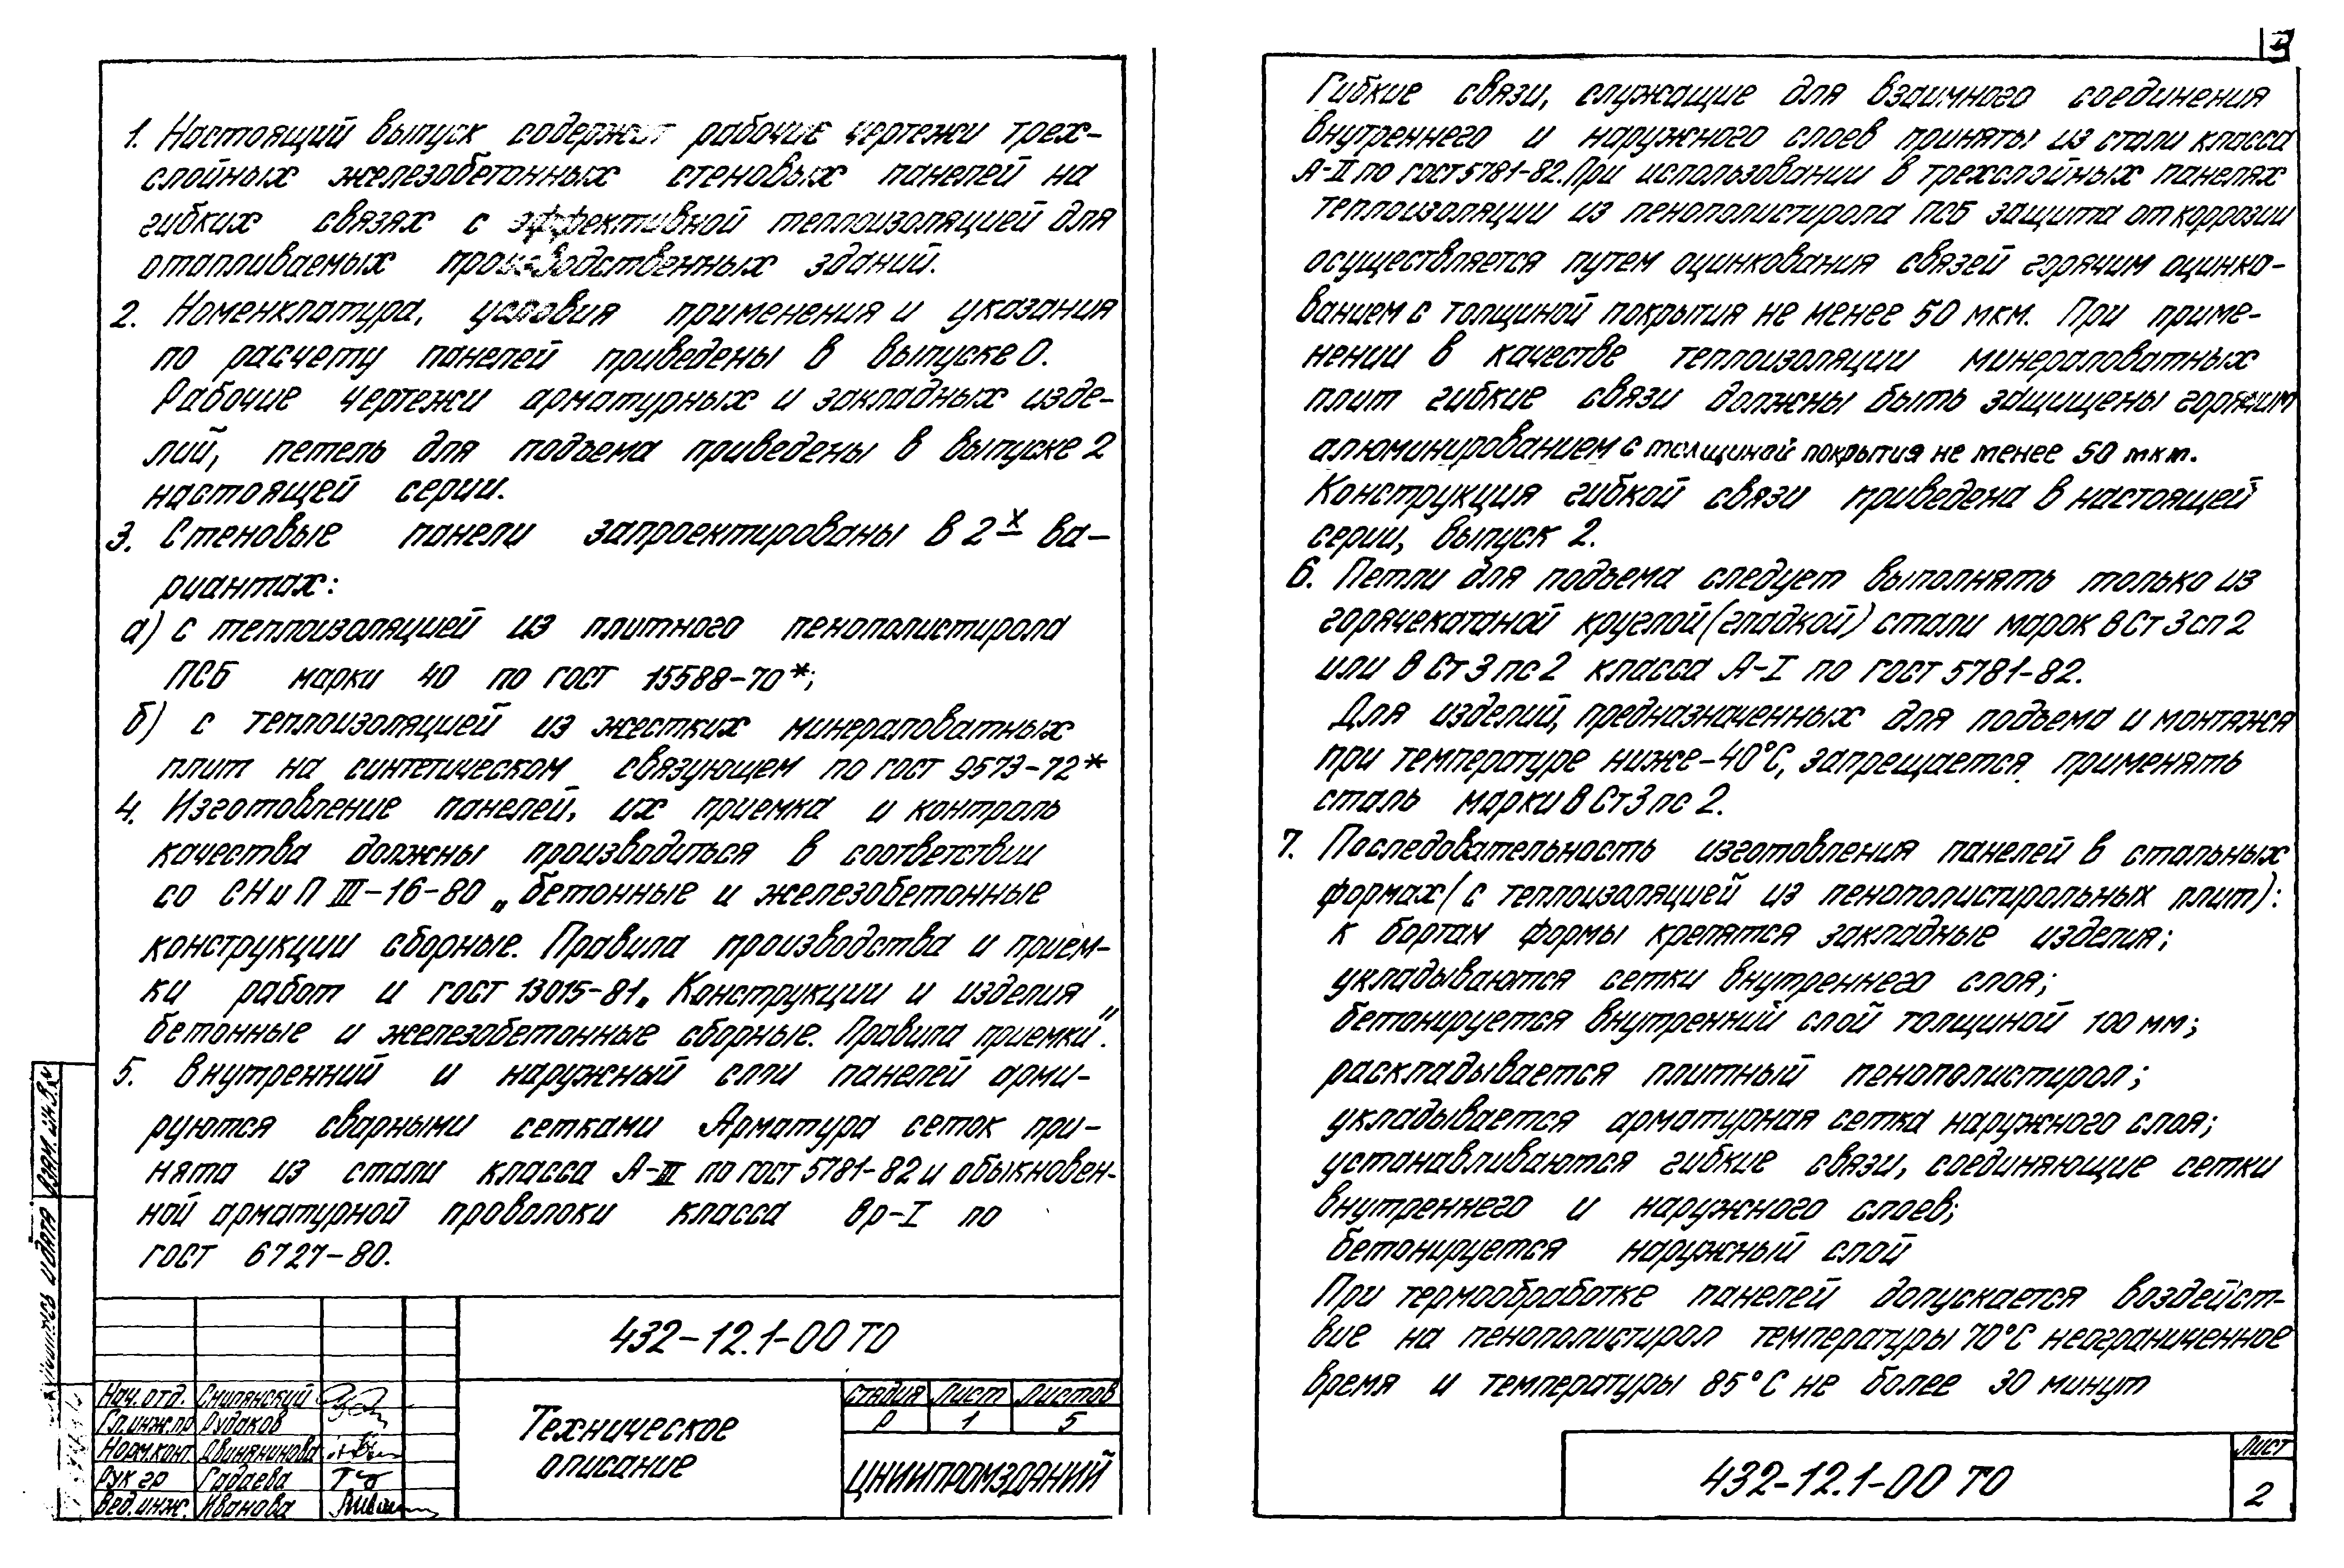 1. Настоящий выпуск содержит рабочие чертежи трех-
слойных железобетонных стеновых панелей на
гибких связях с эффективной теплоизоляцией для
отапливаемых производственных зданий.
2. Номенклатура, условия применения и указания
по расчету панелей приведены в выпуске 0.
Рабочие чертежи арматурных и закладных изде-
лий, петель для подъема приведены в выпуске 2
настоящей серии.
3. Стеновые панели запроектированы в 2х ва-
риантах:
а) с теплоизоляцией из плитного пенополистирола
ПСБ марки 40 по ГОСТ 15588-70*;
б) с теплоизоляцией из жестких минераловатных
плит на синтетическом связующем по ГОСТ 9573-72*
4. Изготовление панелей, их приемка и контроль
качества должны производиться в соответствии
со СНиП III-16-80 „бетонные и железобетонные
конструкции сборные. Правила производства и прием-
ки работ и ГОСТ 13015-81„ Конструкции и изделия
бетонные и железобетонные сборные. Правила приемки".
5. Внутренний и наружный слои панелей арми-
руются сварными сетками Арматура сеток при-
нята из стали класса А-III по ГОСТ 5781-82 и обыкновен-
ной арматурной проволоки класса Вр-I по
ГОСТ 6727-80.
432-12.1-00 ТО
Нач.отд. Снипянский
Гл.инж.пр Рудаков
Норм.конт. Двинянинова
Рук гр Гадаева
Вед.инж. Иванова
Техническое
описание
стадия Лист Листов
Р 1 5
ЦНИИПРОМЗДАНИЙ
Взам. инв.N
Подпись и дата
3
Гибкие связи, служащие для взаимного соединения
внутреннего и наружного слоев приняты из стали класса
А-II по ГОСТ 5781-82. При использовании в трехслойных панелях
теплоизоляции из пенополистирола ПСБ защита от коррозии
осуществляется путем оцинкования связей горячим оцинко-
ванием с толщиной покрытия не менее 50 мкм. При приме-
нении в качестве теплоизоляции минераловатных
плит гибкие связи должны быть защищены горячим
алюминированием с толщиной покрытия не менее 50 мкм.
Конструкция гибкой связи приведена в настоящей
серии, выпуск 2.
6. Петли для подъема следует выполнять только из
горячекатаной круглой (гладкой) стали марок ВСт3сп2
или ВСт3пс2 класса А-I по ГОСТ 5781-82.
Для изделий, предназначенных для подъема и монтяжа
при температуре ниже -40°С, запрещается применять
сталь марки ВСт3пс2.
7. Последовательность изготовления панелей в стальных
формах (с теплоизоляцией из пенополистирольных плит):
к бортам формы крепятся закладные изделия;
укладываются сетки внутреннего слоя;
бетонируется внутренний слой толщиной 100 мм;
раскладывается плитный пенополистирол;
укладывается арматурная сетка наружного слоя;
устанавливаются гибкие связи, соединяющие сетки
внутреннего и наружного слоев;
бетонируется наружный слой
При термообработке панелей допускается воздейст-
вие на пенополистирол температуры 70°С неограниченное
время и температуры 85°С не более 30 минут
432-12.1-00 ТО
Лист
2